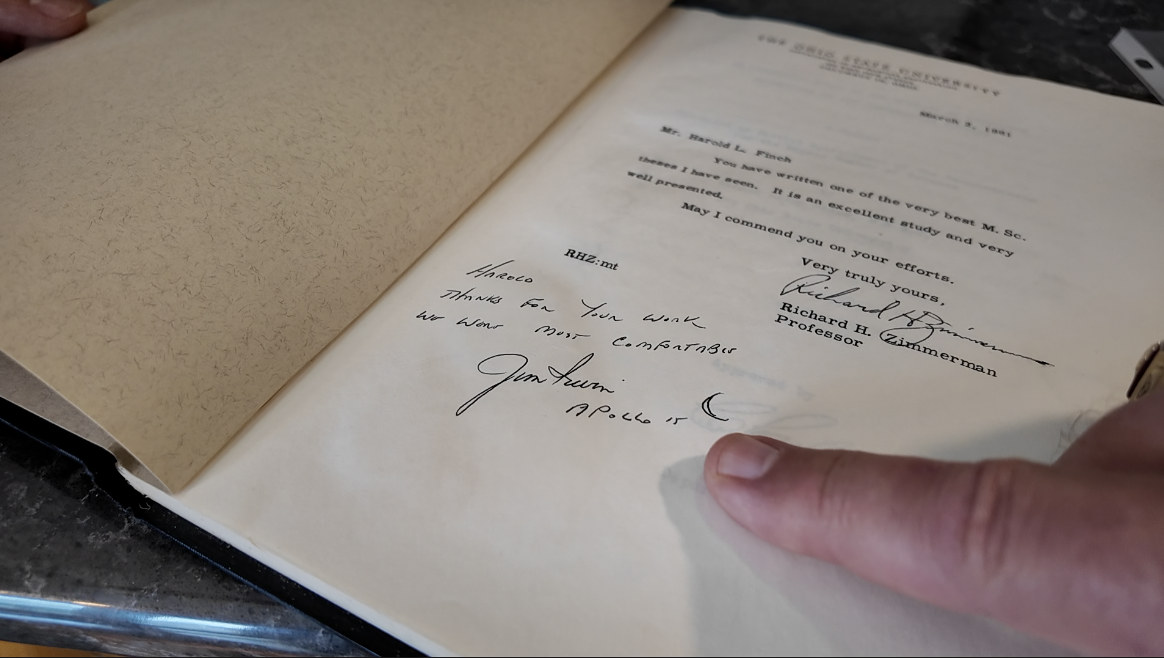 THE OHIO STATE UNIVERSITY
March 3, 1961
Mr. Harold L. Finch
You have written one of the very best M. Sc.
theses I have seen. It is an excellent study and very
well presented.
May I commend you on your efforts.
Very truly yours,
Richard H Zimmerman
Richard H. Zimmerman
Professor
RHZ:mt
HAROLD
THANKS FOR YOUR WORK
WE WERE MOST COMFORTABLE
Jim Irwin
APOLLO 15